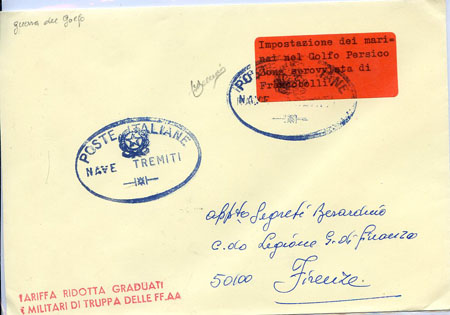 guerra del Golfo
Impostazione dei mari-
nai nel Golfo Persico
Zona sprovvista di
Francobolli
POSTE ITALIANE
NAVE TREMITI
app.to Segreti Berardino
C.do Legione G. di Finanza
50100 Firenze
TARIFFA RIDOTTA GRADUATI
E MILITARI DI TRUPPA DELLE FF.AA